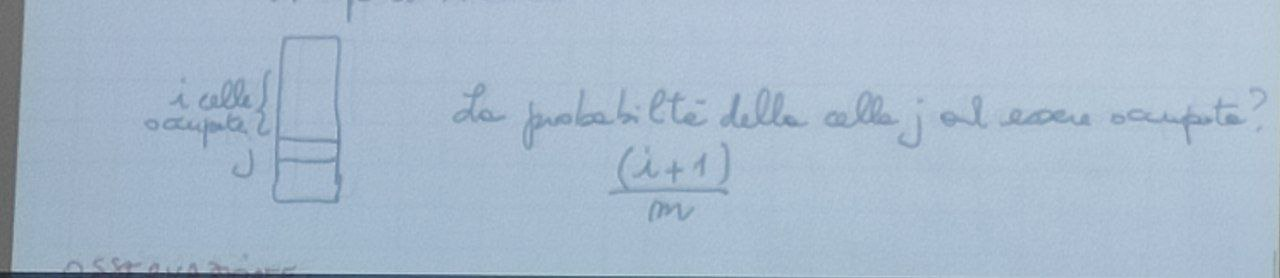 i celle
occupate
j
La probabiltà della cella j ad essere occupata?
(i+1)
m